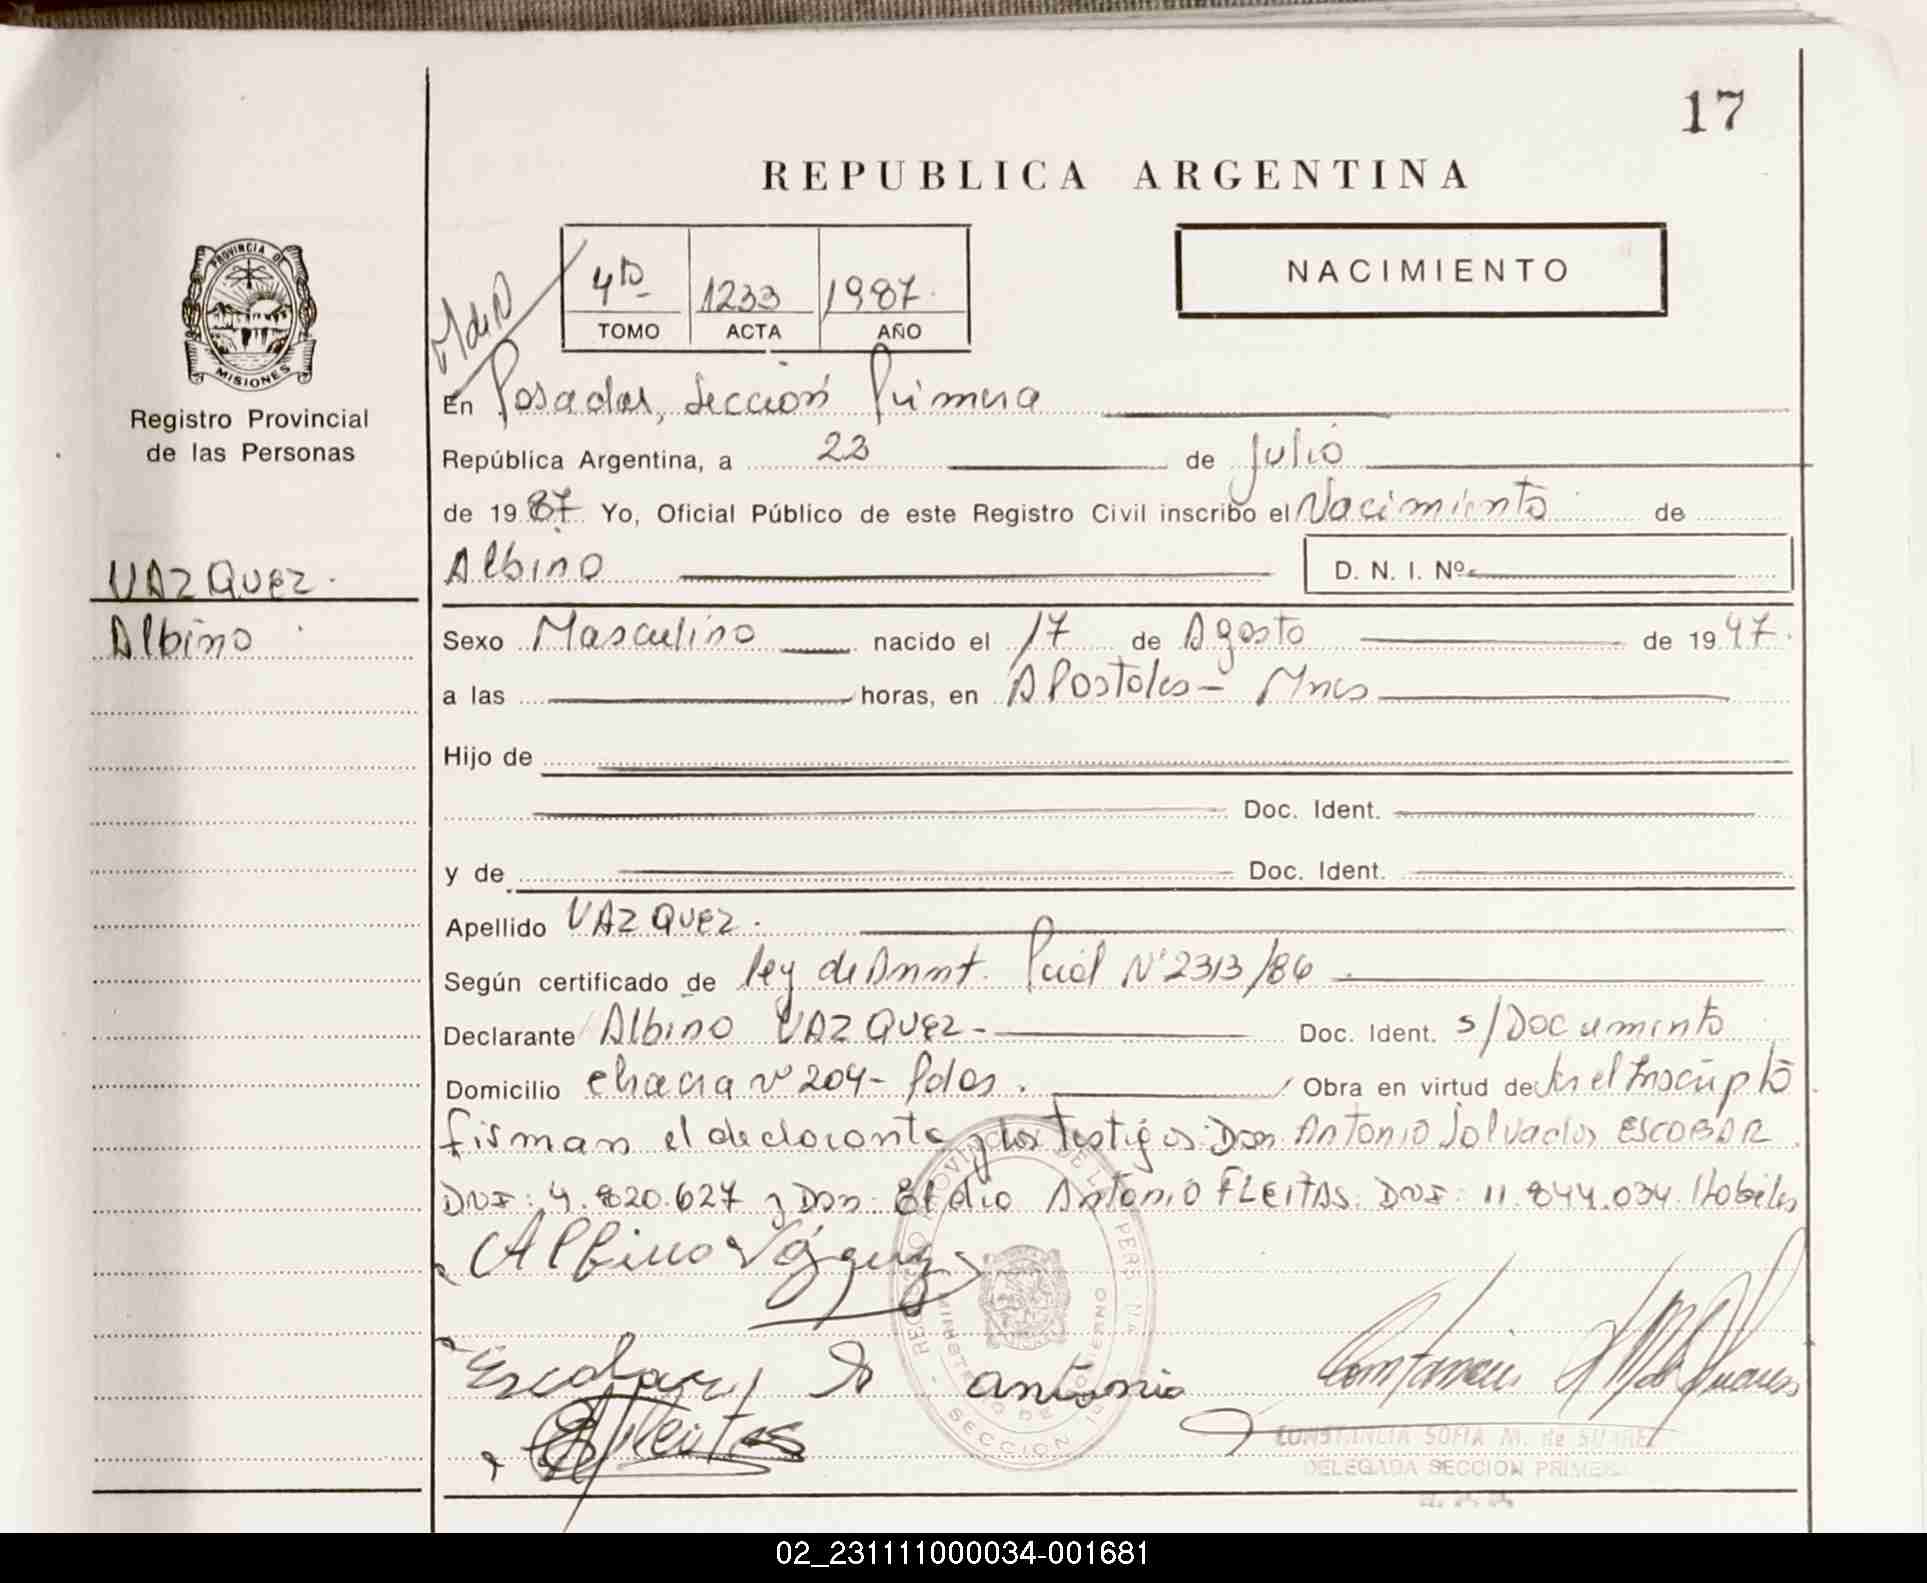 17
REPUBLICA ARGENTINA
PROVINCIA DE
MISIONES
Registro Provincial
de las Personas
4to
1233
1987
TOMO
ACTA
AÑO
NACIMIENTO
En Posadas, Sección Primera
República Argentina, a 23 de Julio
de 1987 Yo, Oficial Público de este Registro Civil inscribo el Nacimiento de
VAZQUEZ.
Albino
Albino D. N. I. Nº
Sexo Masculino nacido el 17 de Agosto de 1947.
a las horas, en Apostoles - Mnes
Hijo de
Doc. Ident.
y de Doc. Ident.
Apellido VAZQUEZ.
Según certificado de ley de Amnt. Pcial Nº 2313/86
Declarante Albino VAZQUEZ - Doc. Ident. s/Documento
Domicilio chacra nº 204 - Pdas. Obra en virtud de ser el Inscripto
firman el declarante y los testigos: Don Antonio Salvador ESCOBAR
DNI: 4.820.627 y Don: Eladio Antonio FLEITAS. DNI: 11.844.034. Habiles
Albino Vázquez
Escobar S Antonio
Fleitas
CONSTANCIA SOFIA M. de SUAREZ
DELEGADA SECCION PRIMERA
02_231111000034-001681